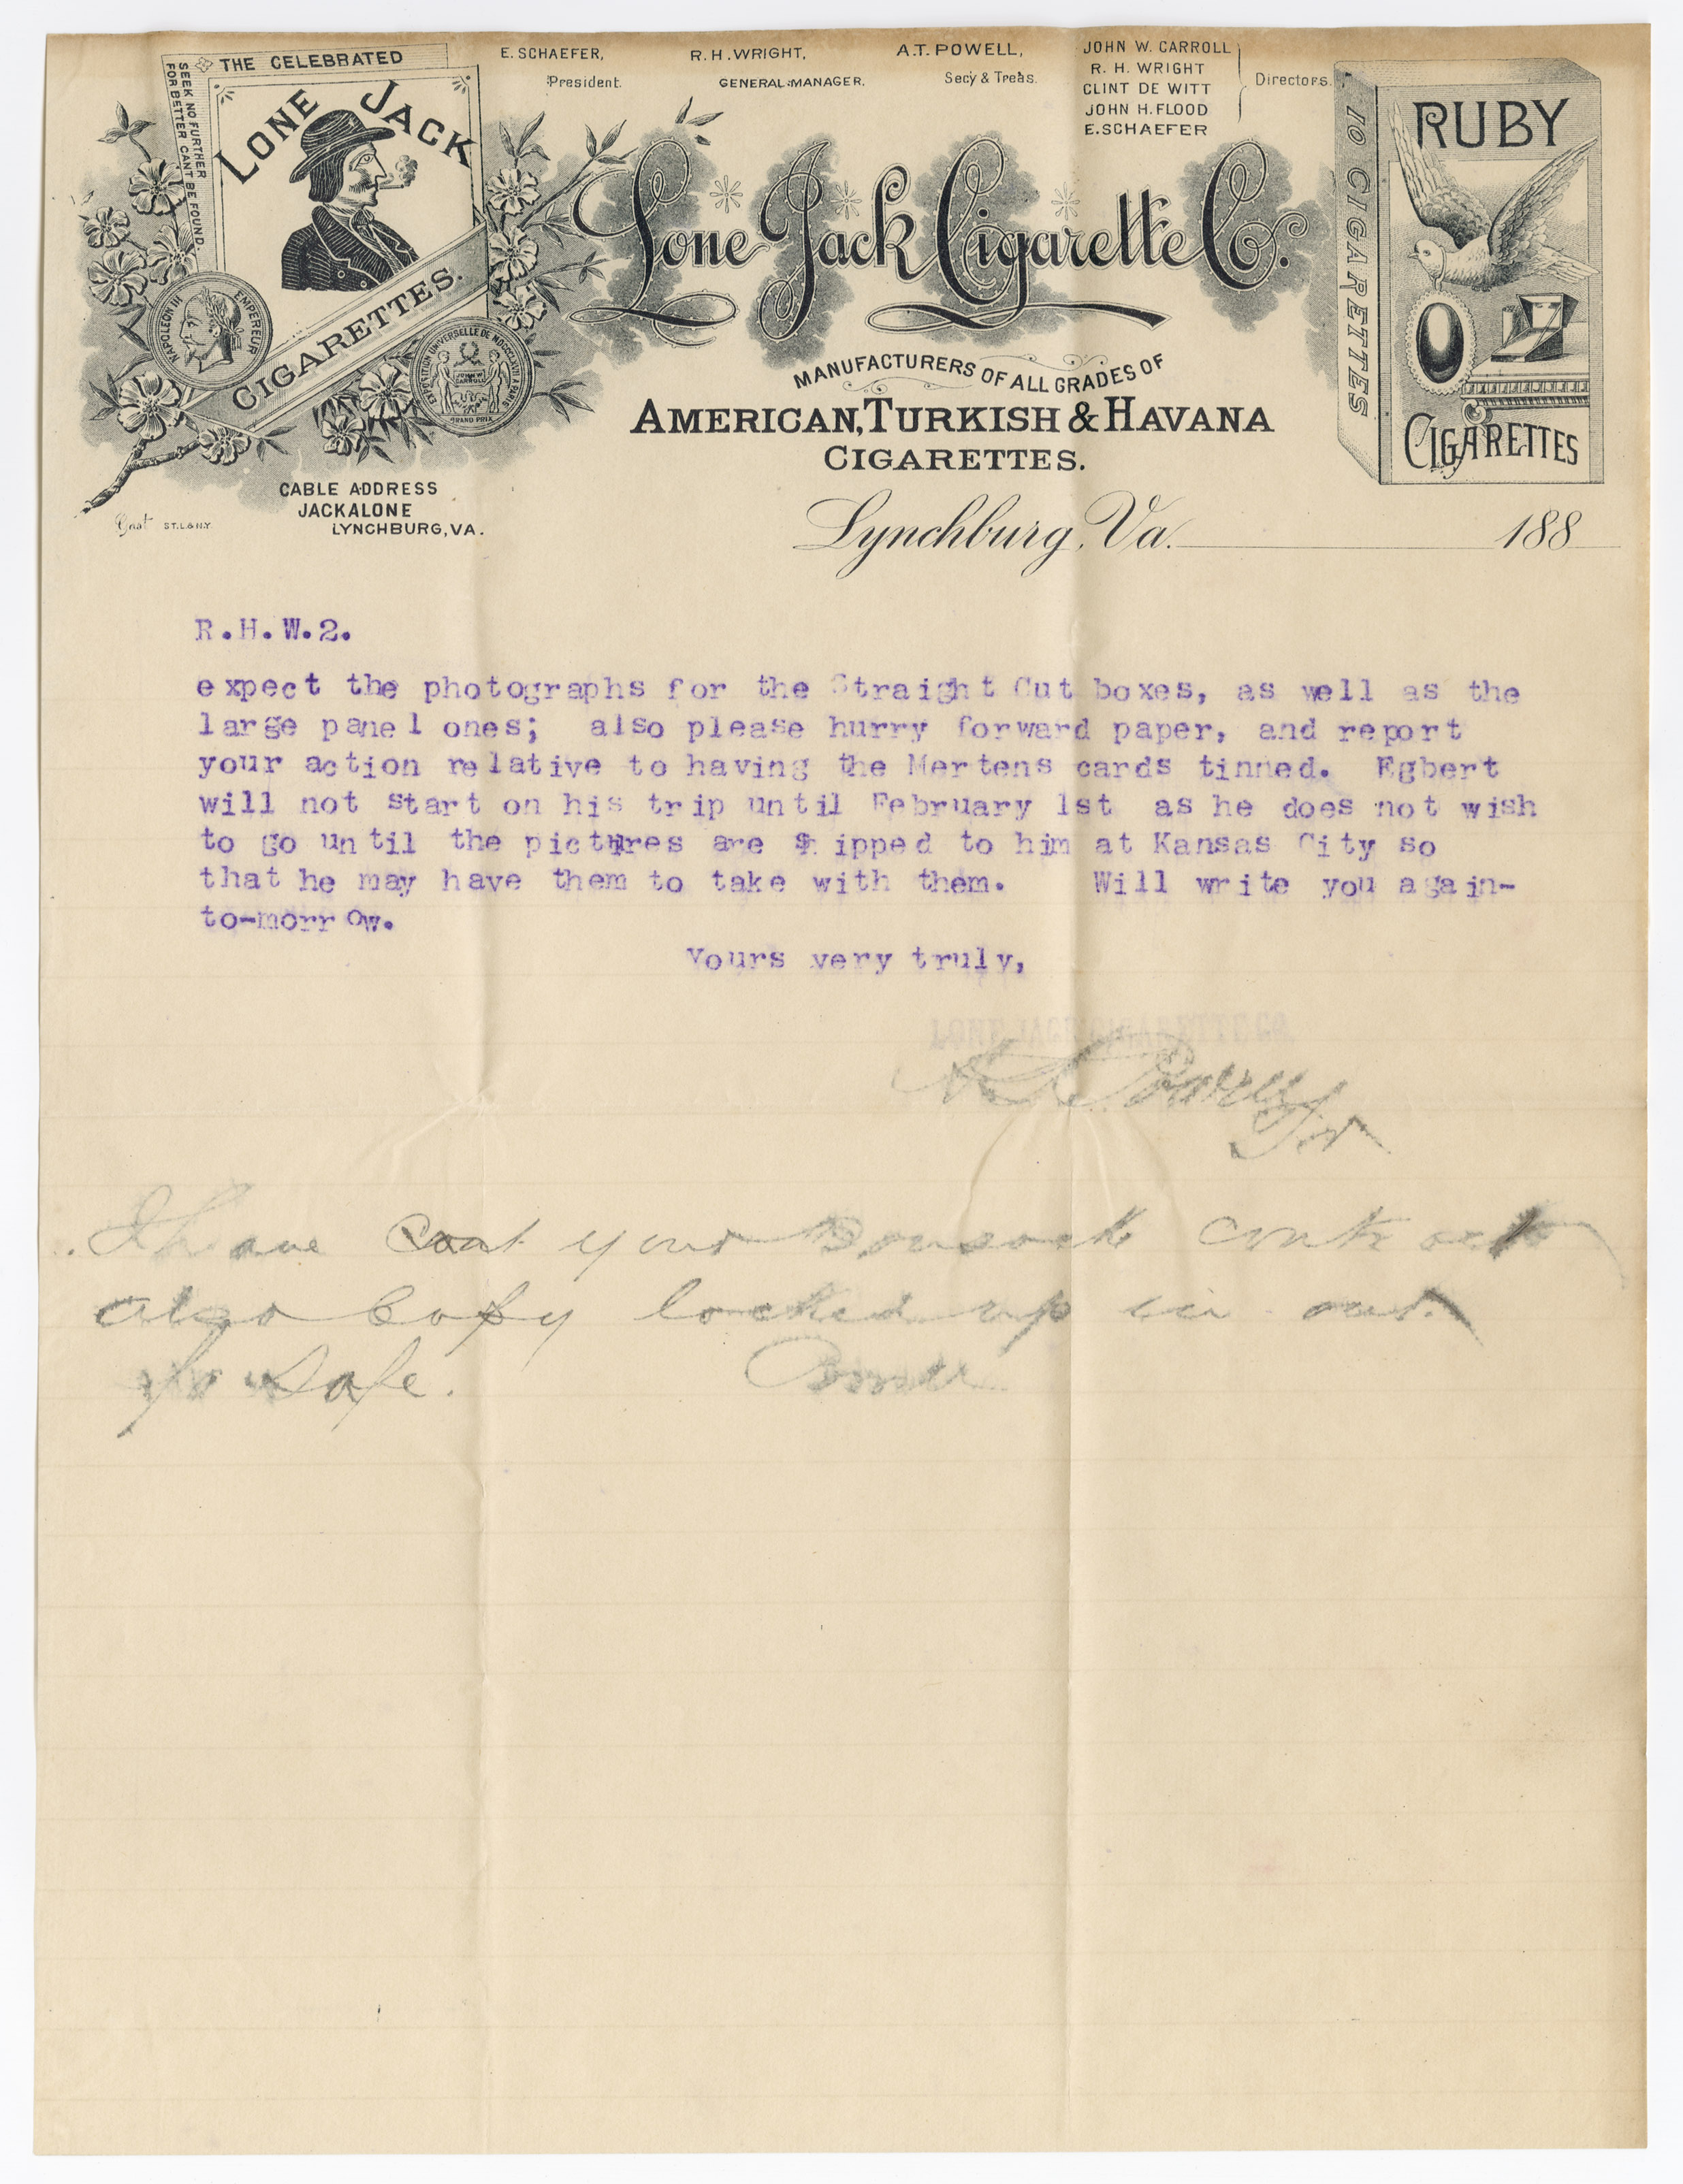 THE CELEBRATED
SEEK NO FURTHER
FOR BETTER CANT BE FOUND.
LONE JACK
CIGARETTES.
NAPOLEON III EMPEREUR
EXPOSITION UNIVERSELLE DE MDCCCLXVII A PARIS
JOHN W. CARROLL
GRAND PRIX
CABLE ADDRESS
JACKALONE
LYNCHBURG, VA.
Gast ST.L.& N.Y.
E. SCHAEFER,
President.
R. H. WRIGHT,
GENERAL MANAGER.
A. T. POWELL,
Secy & Treas.
JOHN W. CARROLL
R. H. WRIGHT
CLINT DE WITT
JOHN H. FLOOD
E. SCHAEFER
Directors.
Lone Jack Cigarette Co.
MANUFACTURERS OF ALL GRADES OF
AMERICAN, TURKISH & HAVANA
CIGARETTES.
10 CIGARETTES
RUBY
CIGARETTES
Lynchburg, Va. 188
R.H.W.2.
expect the photographs for the Straight Cut boxes, as well as the
large panel ones; also please hurry forward paper, and report
your action relative to having the Mertens cards tinned. Egbert
will not start on his trip until February 1st as he does not wish
to go until the pictures are shipped to him at Kansas City so
that he may have them to take with them. Will write you again-
to-morrow.
Yours very truly,
LONE JACK CIGARETTE CO.
I have your Bonsack contract
also Copy locked up in our
Safe.